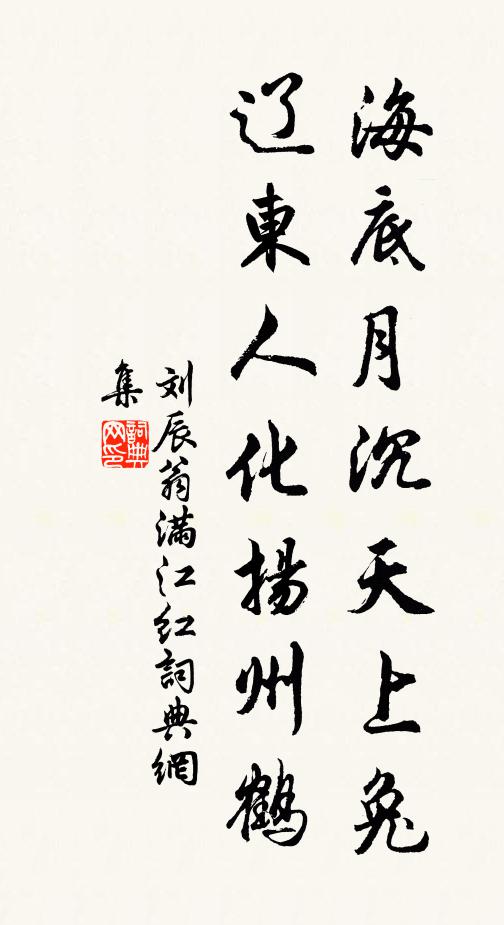 海底月沉天上兔
辽東人化揚州鶴
刘辰翁满江红詞典網
集
詞典
网印